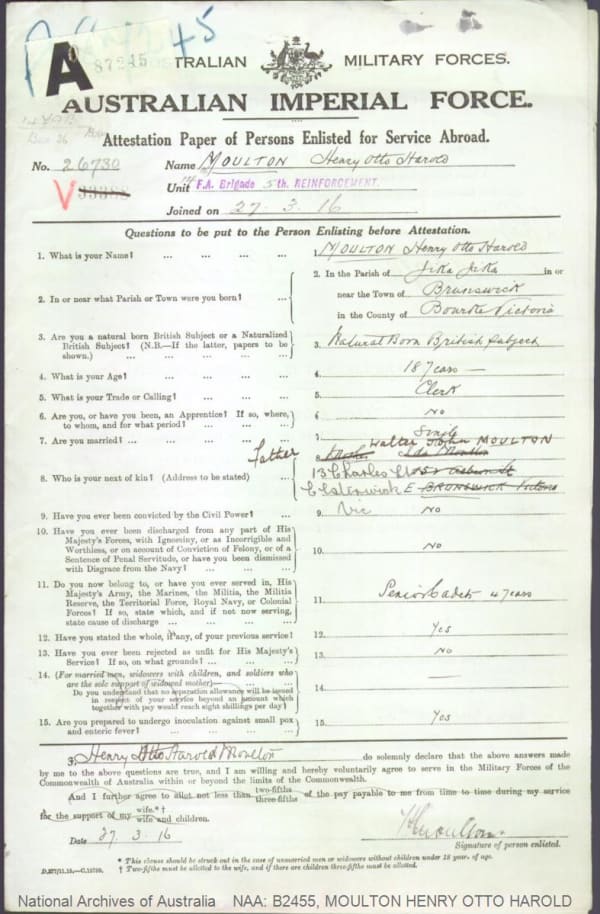 A
87245
TRALIAN MILITARY FORCES.
AUSTRALIAN IMPERIAL FORCE.
Attestation Paper of Persons Enlisted for Service Abroad.
No. 26730 Name MOULTON Henry Otto Harold
V
Unit 14 F.A. Brigade 5th. REINFORCEMENT.
Joined on 27. 3. 16
Questions to be put to the Person Enlisting before Attestation.
1. What is your Name? ... ... ... 1. MOULTON Henry Otto Harold
2. In or near what Parish or Town were you born? ... 2. In the Parish of Jika Jika in or
near the Town of Brunswick
in the County of Bourke Victoria
3. Are you a natural born British Subject or a Naturalized
British Subject? (N.B.—If the latter, papers to be
shown.) ... ... ... ... 3. Natural Born British Subject
4. What is your Age? ... ... ... 4. 18 years —
5. What is your Trade or Calling? ... ... ... 5. Clerk
6. Are you, or have you been, an Apprentice? If so, where,
to whom, and for what period? ... ... ... 6. No
7. Are you married? ... ... ... ... 7. Single
Father Walter John MOULTON
8. Who is your next of kin? (Address to be stated) ... 8. Mother Ida Moulton
13 Charles St
Elsternwick E BRUNSWICK Victoria
Vic
9. Have you ever been convicted by the Civil Power? ... 9. No
10. Have you ever been discharged from any part of His
Majesty's Forces, with Ignominy, or as Incorrigible and
Worthless, or on account of Conviction of Felony, or of a
Sentence of Penal Servitude, or have you been dismissed
with Disgrace from the Navy? ... ... ... 10. No
11. Do you now belong to, or have you ever served in, His
Majesty's Army, the Marines, the Militia, the Militia
Reserve, the Territorial Force, Royal Navy, or Colonial
Forces? If so, state which, and if not now serving,
state cause of discharge ... ... ... ... 11. Senior Cadets 4 years
12. Have you stated the whole, if any, of your previous service? 12. Yes
13. Have you ever been rejected as unfit for His Majesty's
Service? If so, on what grounds? ... ... ... 13. No
14. (For married men, widowers with children, and soldiers who
are the sole support of widowed mother)—
Do you understand that no separation allowance will be issued
in respect of your service beyond an amount which
together with pay would reach eight shillings per day? 14. —
15. Are you prepared to undergo inoculation against small pox
and enteric fever? ... ... ... ... 15. Yes
I, Henry Otto Harold Moulton do solemnly declare that the above answers made
by me to the above questions are true, and I am willing and hereby voluntarily agree to serve in the Military Forces of the
Commonwealth of Australia within or beyond the limits of the Commonwealth.
And I further agree to allot not less than two-fifths three-fifths of the pay payable to me from time to time during my service
for the support of my wife.*† wife and children.
Date 27. 3. 16 Moulton.
Signature of person enlisted.
* This clause should be struck out in the case of unmarried men or widowers without children under 18 years of age.
D.277/11.15.—C.12729. † Two-fifths must be allotted to the wife, and if there are children three-fifths must be allotted.
National Archives of Australia NAA: B2455, MOULTON HENRY OTTO HAROLD